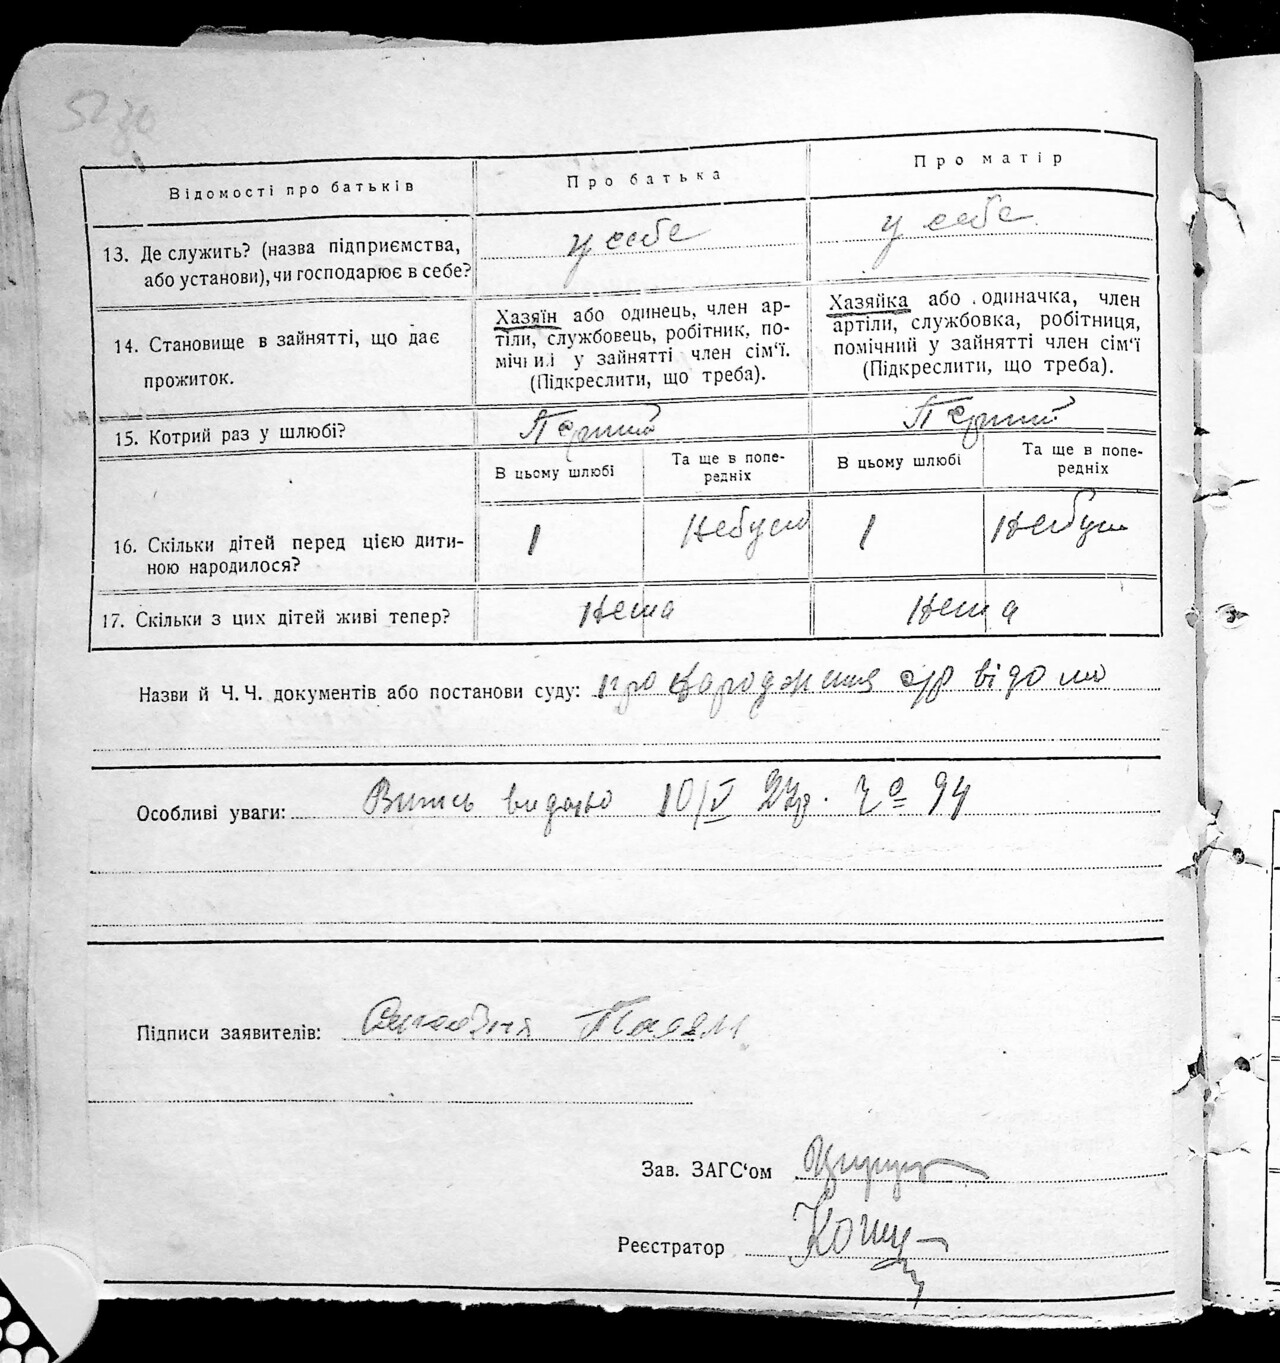 Відомості про батьків
Про батька
Про матір
13. Де служить? (назва підприємства, або установи), чи господарює в себе?
у себе
у себе
14. Становище в зайнятті, що дає прожиток.
Хазяїн або одинець, член ар-
тіли, службовець, робітник, по-
мічний у зайнятті член сім'ї.
(Підкреслити, що треба).
Хазяйка або одиначка, член
артіли, службовка, робітниця,
помічний у зайнятті член сім'ї
(Підкреслити, що треба).
15. Котрий раз у шлюбі?
Перший
Перший
В цьому шлюбі
Та ще в попе-
редніх
В цьому шлюбі
Та ще в попе-
редніх
16. Скільки дітей перед цією дити-
ною народилося?
1
Небуло
1
Небуло
17. Скільки з цих дітей живі тепер?
Нема
Нема
Назви й Ч. Ч. документів або постанови суду: про народження
Особливі уваги: Випись видано 10/V 94
Підписи заявителів:
Зав. ЗАГС'ом
Реєстратор